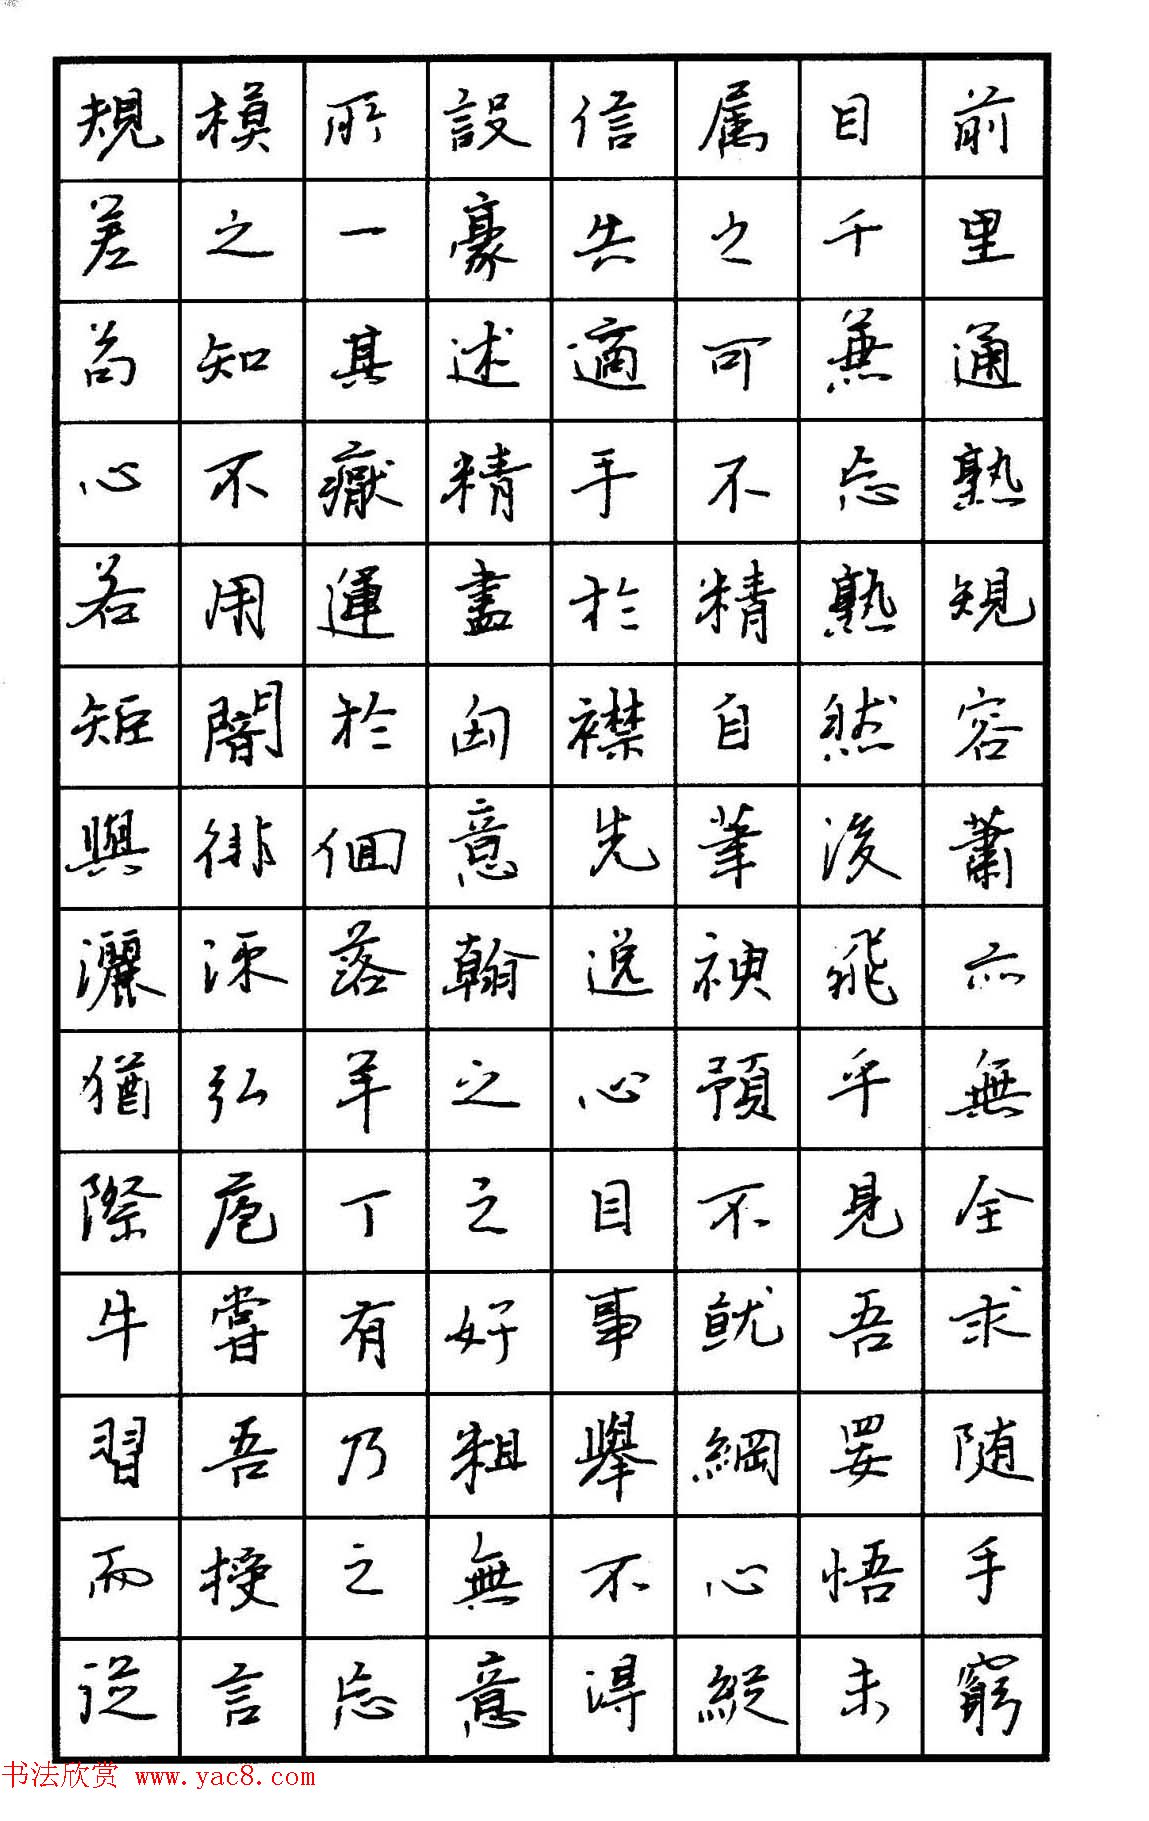 規模所設信属目前
差之一豪失之千里
苟知其述適可兼通
心不厭精手不忘熟
若用運盡於精熟規
矩闇於匈襟自然容
與徘徊意先筆後蕭
灑流落翰逸神飛亦
猶弘羊之心預乎無
際庖丁之目不見全
牛嘗有好事就吾求
習吾乃粗舉綱要随
而授之無不心悟手
從言忘意得縱未窮
书法欣赏 www.yac8.com